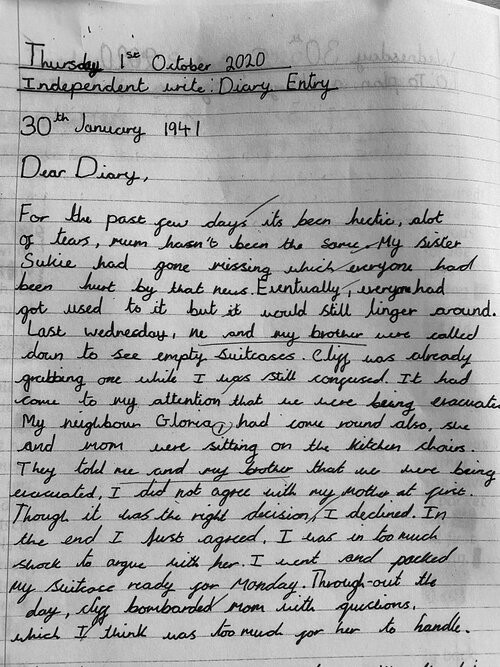 Thursday 1st October 2020
Independent write: Diary Entry
30th January 1941
Dear Diary,
For the past few days its been hectic, alot
of tears, mum hasn't been the same. My sister
Sukie had gone missing which everyone had
been hurt by that news. Eventually, everyone had
got used to it but it would still linger around.
Last wednesday, me and my brother were called
down to see empty suitcases. Cliff was already
grabbing one while I was still confused. It had
come to my attention that we were being evacuated
My neighbour Gloria, had come round also, she
and mom were sitting on the kitchen chairs.
They told me and my brother that we were being
evacuated, I did not agree with my mother at first.
Though it was the right decision, I declined. In
the end I just agreed, I was in too much
shock to argue with her. I went and packed
my suitcase ready for Monday. Through-out the
day, cliff bombarded mom with questions.
which I think was too much for her to handle.